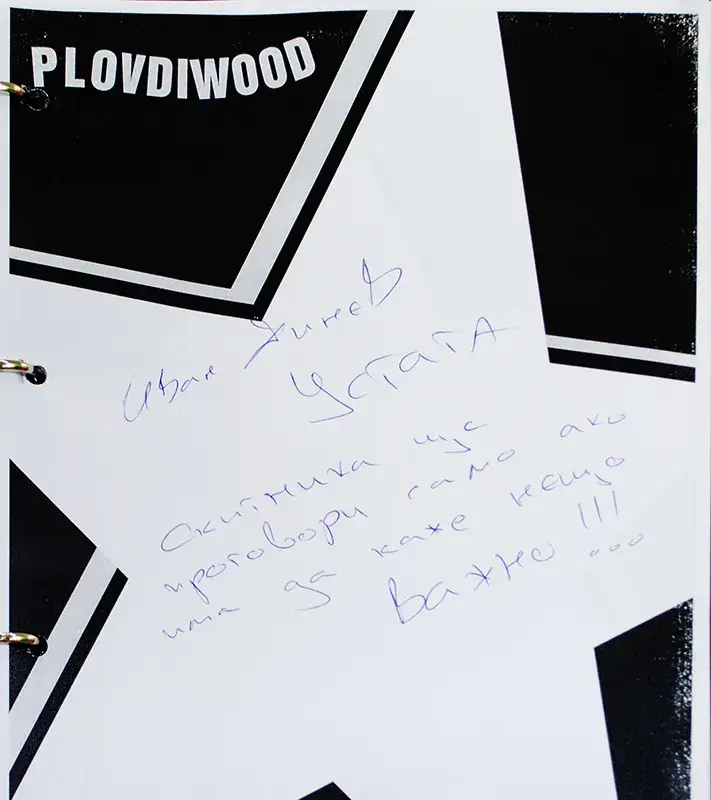 PLOVDIWOOD
Иван Динев
УСТАТА
Скитника ще
проговори само ако
има да каже нещо
Важно !!!